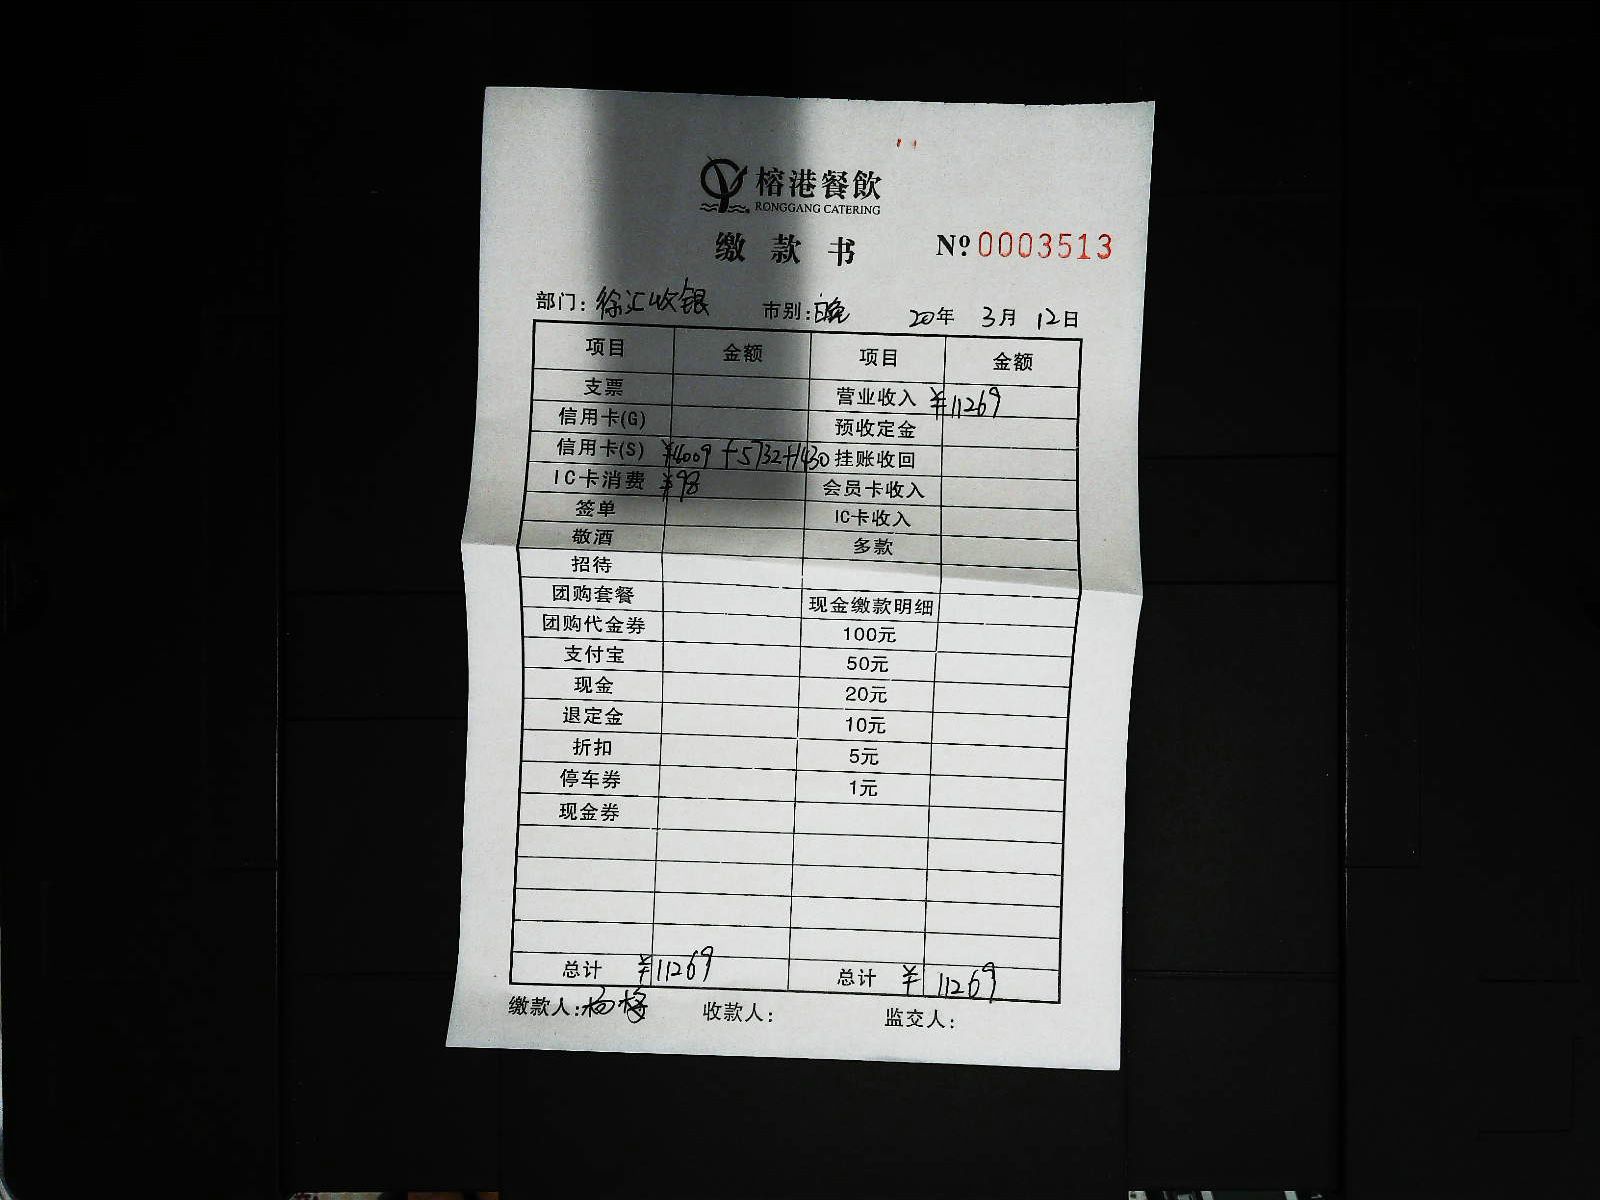 榕港餐飲
RONGGANG CATERING
缴款书 № 0003513
部门: 徐汇收银 市别: 晚 20年 3月 12日
项目 金额 项目 金额
支票 营业收入 ¥11269
信用卡(G) 预收定金
信用卡(S) ¥4009+5732+1430 挂账收回
IC卡消费 ¥98 会员卡收入
签单 IC卡收入
敬酒 多款
招待
团购套餐 现金缴款明细
团购代金券 100元
支付宝 50元
现金 20元
退定金 10元
折扣 5元
停车券 1元
现金券
总计 ¥11269 总计 ¥11269
缴款人: 杨梅 收款人: 监交人: